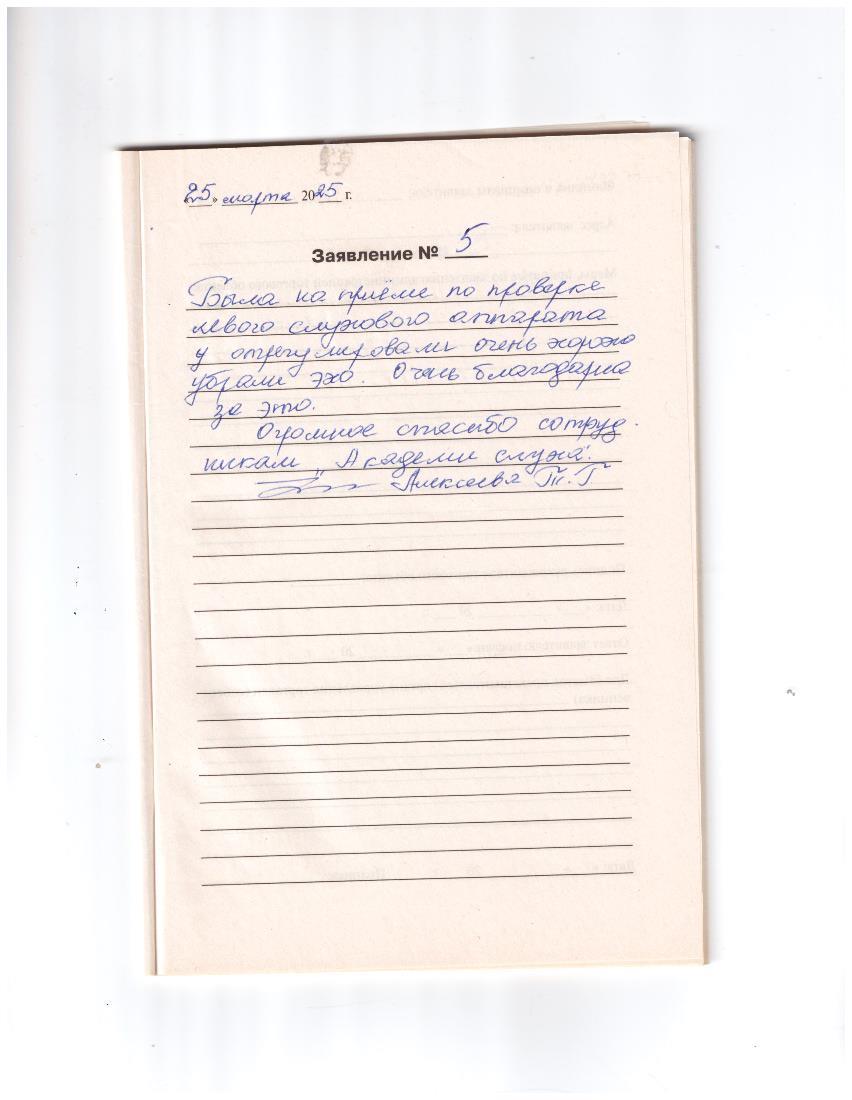 «25» марта 2025 г.
Заявление № 5
Была на приёме по проверке
левого слухового аппарата
у отрегулировали очень хорошо
убрали эхо. Очень благодарна
за это.
Огромное спасибо сотруд-
никам „Академи слуха".
Алексеева Т.Г